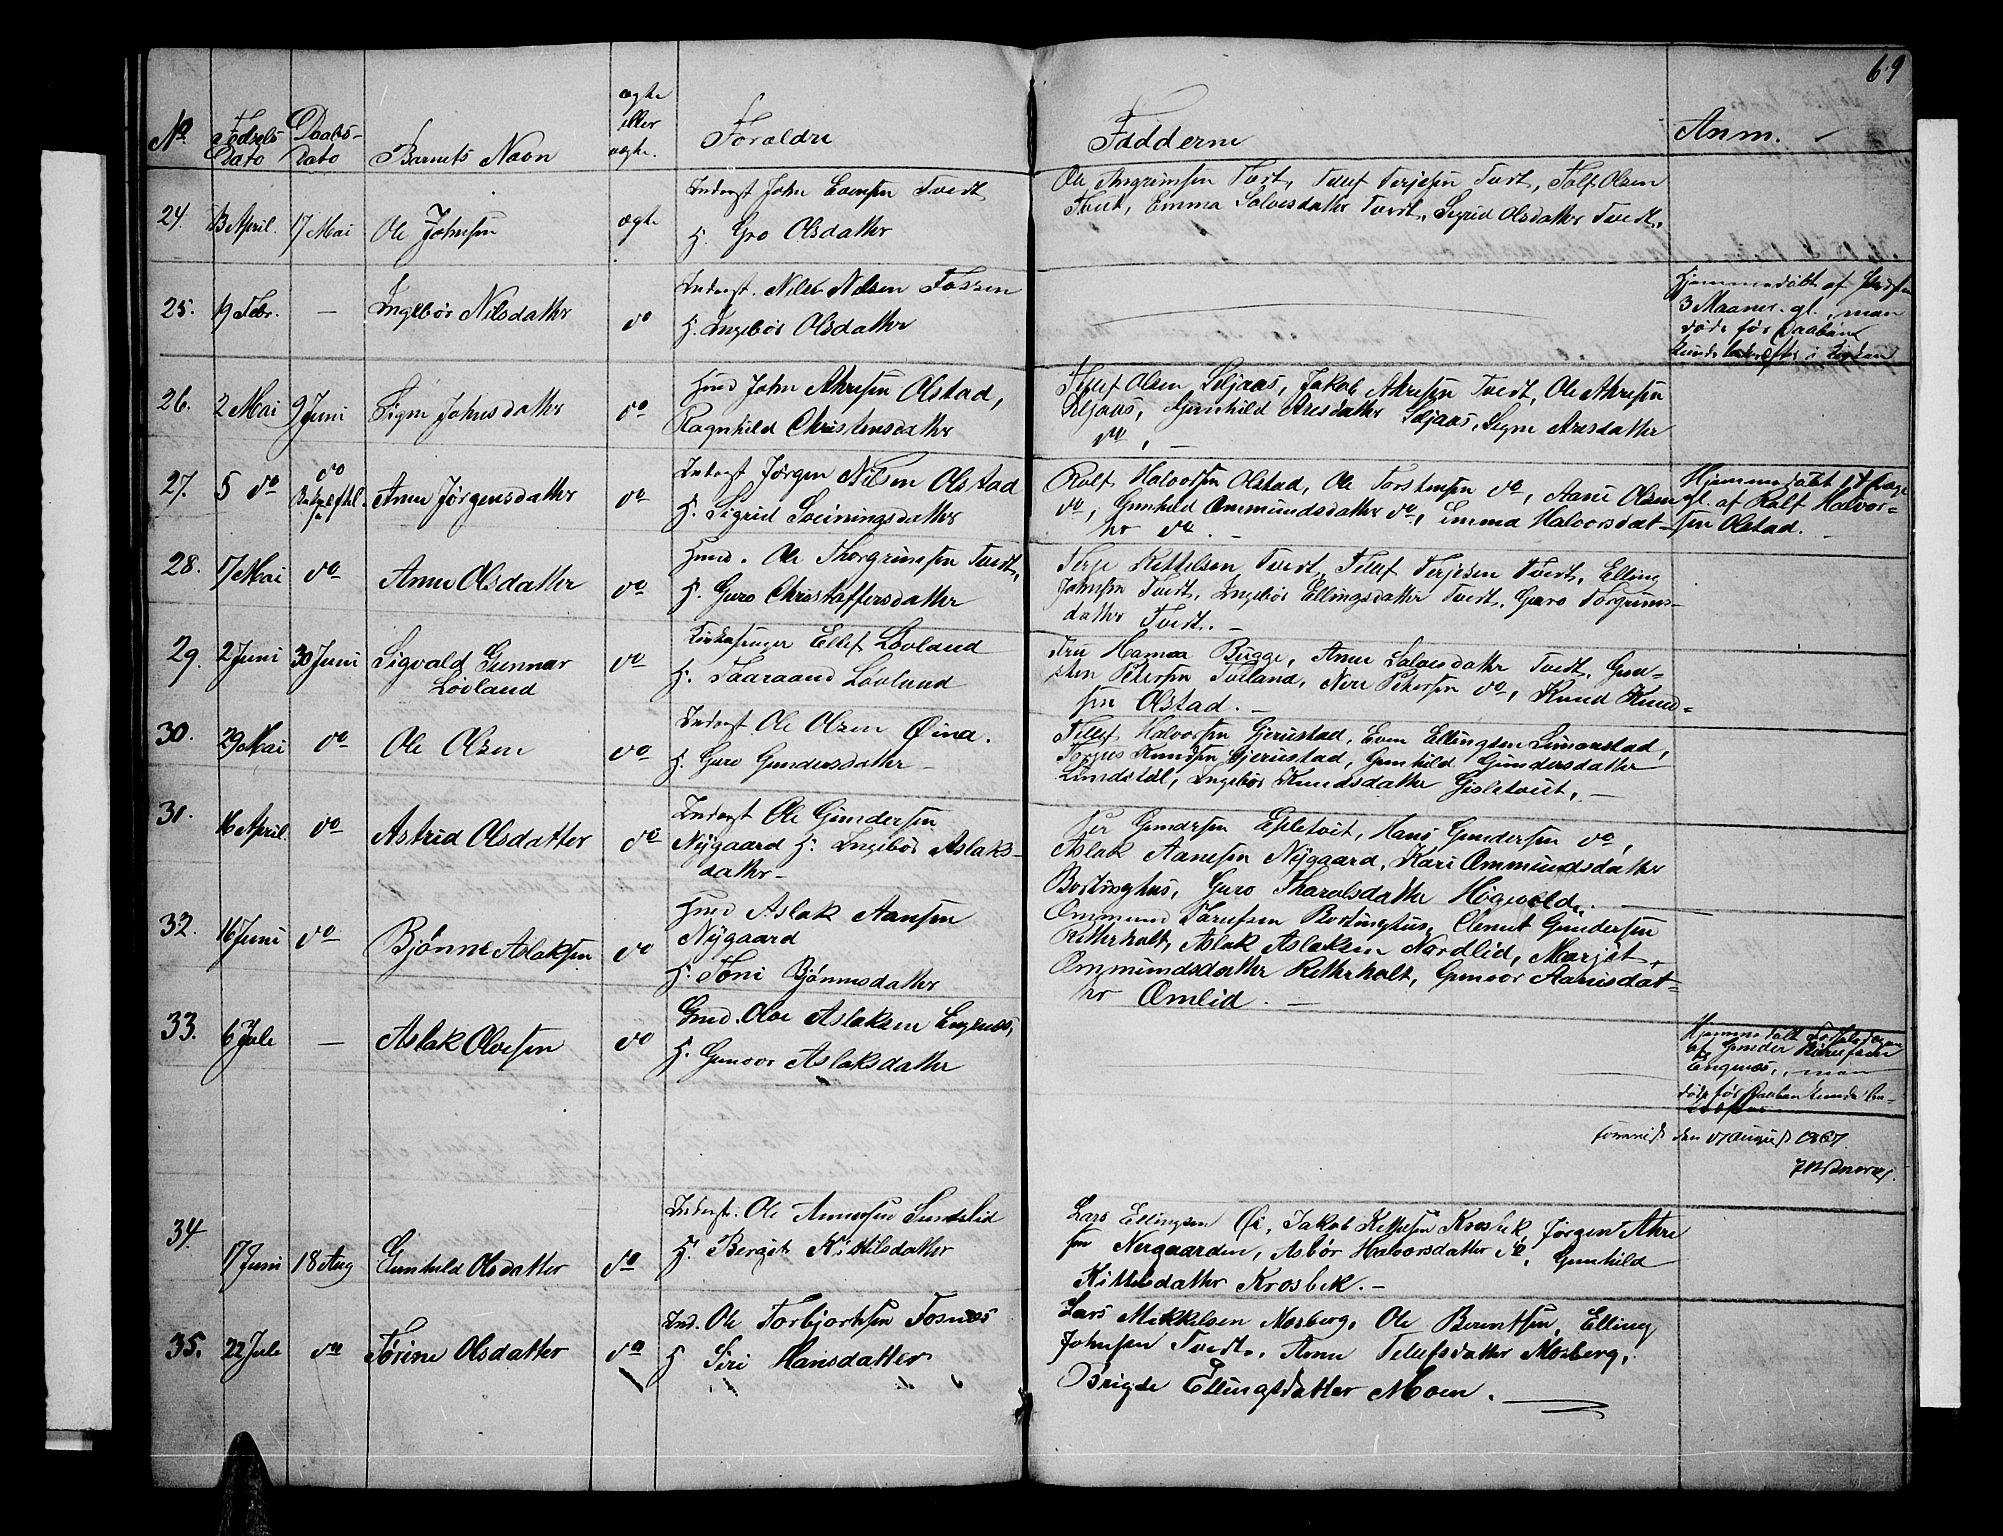 69
No Fødsels Dato Daabs-Dato Barnets Navn ægte eller uægte. Forældre Fadderne Anm.
24. 13 April. 17 Mai Ole Johnsen ægte
Inderst John Evensen Tvedt
H. Gro Olsdatter
Ole Tngrimsen Tvedt, Tellef Terjesen Tvedt, Tolf Olsen
Tvedt, Emma Solvesdatter Tvedt, Sigrid Olsdatter Tvedt.
25. 19 Febr. — Ingebør Nilsdatter do
Inderst. Nils Nilsen Fossen
H. Ingebør Olsdatter
Hjemmedøbt af
3 Maaner. gl., man
døde før Daaben
kunde bekræftes i Kirken
26. 2 Mai 9 Juni Signe Johnsdatter do
Huusmd John Akresen Olstad,
Ragnhild Christensdatter
Tellef Olsen Seljaas, Jakob Akresen Tvedt, Ole Akresen
Seljaas, Gunhild Aresdatter Seljaas, Signe Aresdatter
do, —
27. 5 do do Anne Jørgensdatter do
Inderst Jørgen Nilsen Olstad
H. Sigrid Sveiningsdatter
Rolf Halvorsen Olstad, Ole Torstensen do, Aani Olsen
do, Gunhild Ommundsdatter do, Emma Halvorsdat-
ter do. —
Hjemmedøbt 14 Dage
gl. af Rolf Halvor-
sen Olstad. —
28. 17 Mai do Anne Olsdatter do
Huusmd. Ole Thorgrimsen Tvedt,
H. Guro Christoffersdatter
Terje Kittelsen Tvedt, Tellef Terjesen Tvedt, Elling
Johnsen Tvedt, Ingebør Ellingsdatter Tvedt, Guro Torgrims-
datter Tvedt. —
29. 2 Juni 30 Juni Sigvald Gunnar
Løvland do
Kirkesanger Ellef Løvland
H. Taaraand Løvland
Fru Hanna Bugge, Anne Salvesdatter Tvedt, Gun-
sten Petersen Tveland, Nere Petersen do, Knud Knud-
sen Olstad. —
30. 29 Mai do Ole Olsen do
Inderst Ole Olsen Øina.
H. Guro Gundersdatter —
Tellef Halvorsen Gjerustad, Even Ellingsen Simonstad,
Torjus Knudsen Gjerustad, Gunhild Gundersdatter
Lundstøl, Ingebør Knudsdatter Gisletveit, —
31. 16 April do Astrid Olsdatter do
Inderst Ole Gundersen
Nygaard H. Ingebør Aslaks-
datter —
Per Gundersen Epletveit, Hans Gundersen do,
Aslak Aanesen Nygaard, Kari Ommundsdatter
Bortinghus, Guro Tharalsdatter Høgevold. —
32. 16 Juni do Bjønne Aslaksen do
Huusmd Aslak Aansen
Nygaard
H. Toni Bjønnesdatter
Ommund Tarefsen Bortinghus, Clemet Gundersen
Retterholt, Aslak Aslaksen Nordlid, Marjet
Ommundsdatter Retterholt, Gunvor Aanisdat-
ter Omlid. —
33. 6 Jule — Aslak Olvesen do
Gmd. Olve Aslaksen Engenæs,
H. Gunvor Aslaksdatter
Hjemmedøbt Fødselsdagen
af Gunder
Engenæs, man
døde før Daaben kunde be-
den 17 August 1867.
34. 17 Juni 18 Aug Gunhild Olsdatter do
Inderst. Ole Annersen Sundslid
H. Bergit Kittilsdatter
Lars Ellingsen Øi, Jakob Kittelsen Krosbek, Jørgen Akre
sen Nergaarden, Asbør Halvorsdatter do, Gunhild
Kittilsdatter Krosbek. —
35. 22 Jule do Torine Olsdatter do
Ind. Ole Torbjørnsen Fosnæs
H Siri Hansdatter
Lars Mikkelsen Mosberg, Ole Berentsen, Elling
Johnsen Tvedt, Anne Tellefsdatter Mosberg,
Brigde Ellingsdatter Moen. —